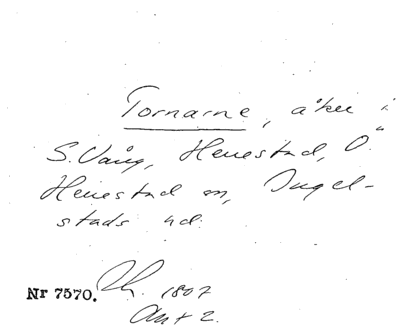 Tornarne, åker i
S. Vång, Herrestad, Ö.
Herrestad sn, Ingel-
stads hd.
Nr 7570. 1807
Akt 2.